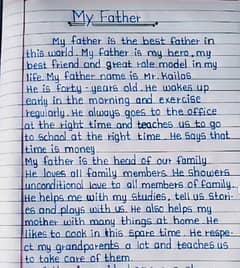 My Father
My father is the best father in
this world. My father is my hero, my
best friend and great role model in my
life. My father name is Mr. Kailas.
He is forty-years old. He wakes up
early in the morning and exercise
regularly. He always goes to the office
at the right time and teaches us to go
to school at the right time. He says that
time is money.
My father is the head of our family.
He loves all family members. He showers
unconditional love to all members of family.
He helps me with my studies, tell us stori-
es and plays with us. He also helps my
mother with many things at home. He
likes to cook in this spare time. He respe-
ct my grandparents a lot and teaches us
to take care of them.